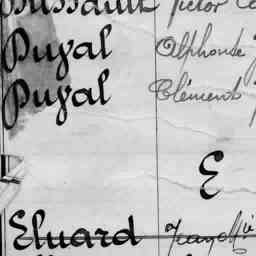 Victor
Puyal Alphonse
Puyal Clément
E
Eluard